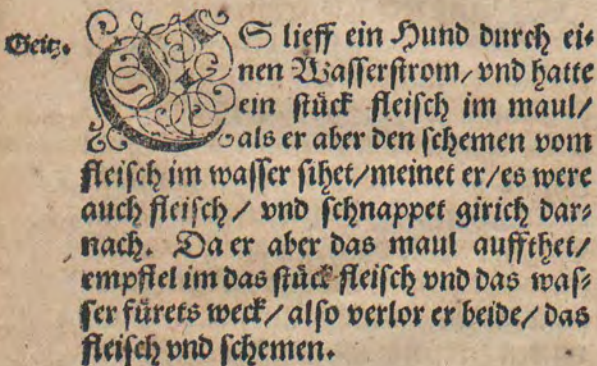 Geitz.
ES lieff ein Hund durch ei⸗
nen Wasserstrom/ vnd hatte
ein stück fleisch im maul/
als er aber den schemen vom
fleisch im wasser sihet/ meinet er/ es were
auch fleisch/ vnd schnappet girich dar⸗
nach. Da er aber das maul auffthet/
empfiel im das stück fleisch vnd das was⸗
ser fürets weck/ also verlor er beide/ das
fleisch vnd schemen.